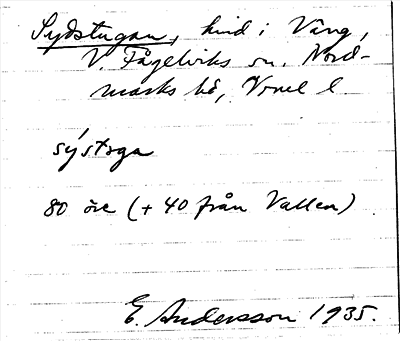 Sydstugan, hmd i Vång,
V. Fågelviks sn. Nord-
marks hd, Vrml l.
sýstᴐga
80 öre (+ 40 från Vallen)
E. Andersson 1935.